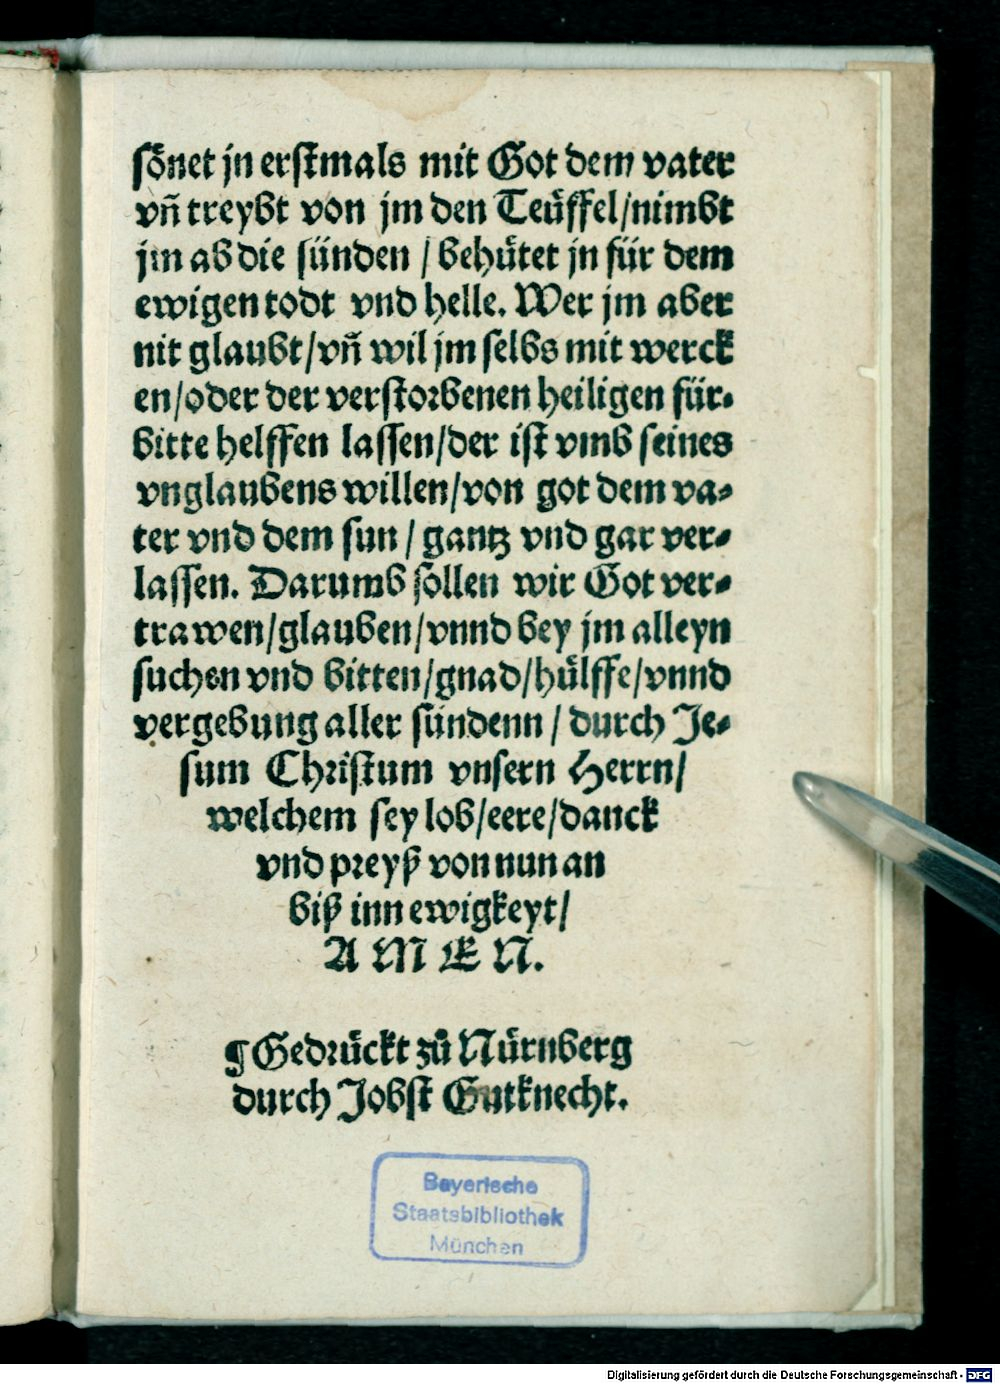 sönet jn erstmals mit Got dem vater
vñ treybt von jm den Teüffel/nimbt
jm ab die sünden / behütet jn für dem
ewigen todt vnd helle. Wer jm aber
nit glaubt/vñ wil jm selbs mit werck
en/oder der verstorbenen heiligen für⸗
bitte helffen lassen/der ist vmb seines
vnglaubens willen/von got dem va⸗
ter vnd dem sun / gantz vnd gar ver⸗
lassen. Darumb sollen wir Got ver⸗
trawen/glauben/vnnd bey jm alleyn
suchen vnd bitten/gnad/hülffe/vnnd
vergebung aller sündenn / durch Je⸗
sum Christum vnsern Herrn/
welchem sey lob/eere/danck
vnd preyß von nun an
biß inn ewigkeyt/
A M E N.
¶ Gedrückt zů Nürnberg
durch Jobst Gutknecht.
Bayerische
Staatsbibliothek
München
Digitalisierung gefördert durch die Deutsche Forschungsgemeinschaft - DFG